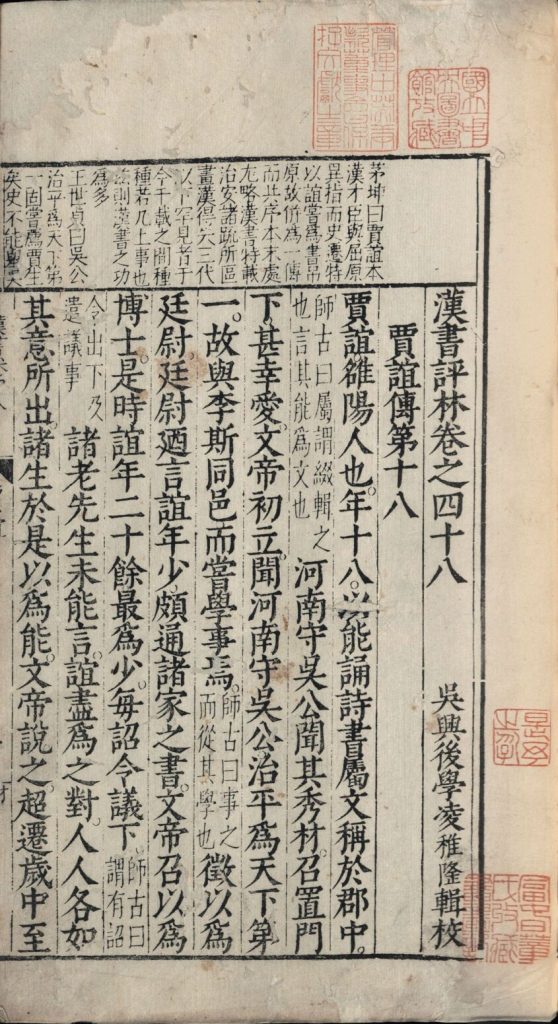 管理中英庚款董事會保存文獻之章
國立中央圖書館收藏
茅坤曰賈誼本
漢才臣與屈原
異指而史遷特
以誼嘗爲書弔
原故併爲一傳
而其序本末處
尤略漢書特載
治安諸疏所區
畫漢得失三代
以下罕見者于
今千載之間種
種若几上事也
則漢書之功
爲多
王世貞曰吳公
治平爲天下第
一固嘗薦賈生
矣史不能
漢書評林卷之四十八
吳興後學凌稚隆輯校
賈誼傳第十八
賈誼。雒陽人也。年十八。以能誦詩書屬文稱於郡中。
師古曰屬謂綴輯之也言其能爲文也河南守吳公聞其秀材。召置門
下甚幸愛。文帝初立。聞河南守吳公治平爲天下第
一。故與李斯同邑而嘗學事焉。師古曰事之而從其學也徵以爲
廷尉。廷尉廼言誼年少頗通諸家之書。文帝召以爲
博士。是時誼年二十餘最爲少。每詔令議下。師古曰謂有詔
令出下及遣議事諸老先生未能言。誼盡爲之對。人人各如
其意所出。諸生於是以爲能。文帝說之。超遷歲中至